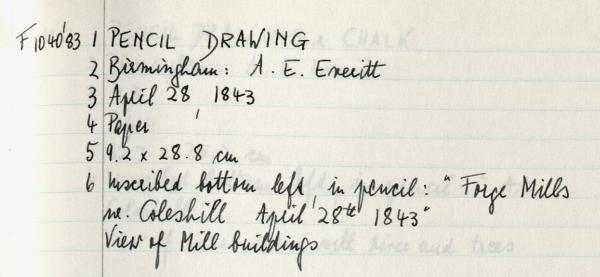 F1040'83 1 PENCIL DRAWING
2 Birmingham: A. E. Everitt
3 April 28 1843
4 Paper
5 9.2 x 28.8 cm
6 Inscribed bottom left, in pencil: "Forge Mills
nr. Coleshill April 28th 1843"
View of Mill buildings